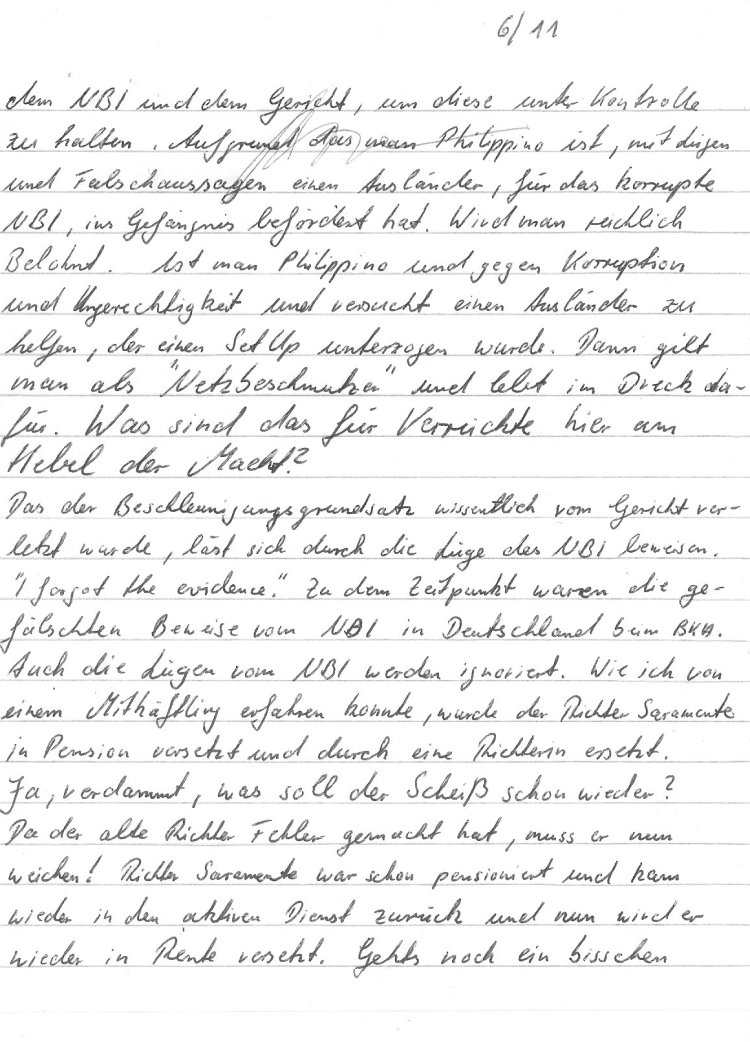 6/11
dem NBI und dem Gericht, um diese unter Kontrolle
zu halten. Aufgrund das man Philippino ist, mit Lügen
und Falschaussagen einen Ausländer, für das korrupte
NBI, ins Gefängnis befördert hat. Wird man reichlich
Belohnt. Ist man Philippino und gegen Korruption
und Ungerechtigkeit und versucht einen Ausländer zu
helfen, der einen SetUp unterzogen wurde. Dann gilt
man als "Netzbeschmutzer" und lebt im Dreck da-
für. Was sind das für Verrückte hier am
Hebel der Macht?
Das der Beschleunigungsgrundsatz wissentlich vom Gericht ver-
letzt wurde, läst sich durch die Lüge des NBI beweisen.
"I forgot the evidence." Zu dem Zeitpunkt waren die ge-
fälschten Beweise vom NBI in Deutschland beim BKA.
Auch die Lügen vom NBI werden ignoriert. Wie ich von
einem Mithäftling erfahren konnte, wurde der Richter Saramente
in Pension versetzt und durch eine Richterin ersetzt.
Ja, verdammt, was soll der Scheiß schon wieder?
Da der alte Richter Fehler gemacht hat, muss er nun
weichen! Richter Saramente war schon pensioniert und kam
wieder in den aktiven Dienst zurück und nun wird er
wieder in Rente versetzt. Gehts noch ein bisschen